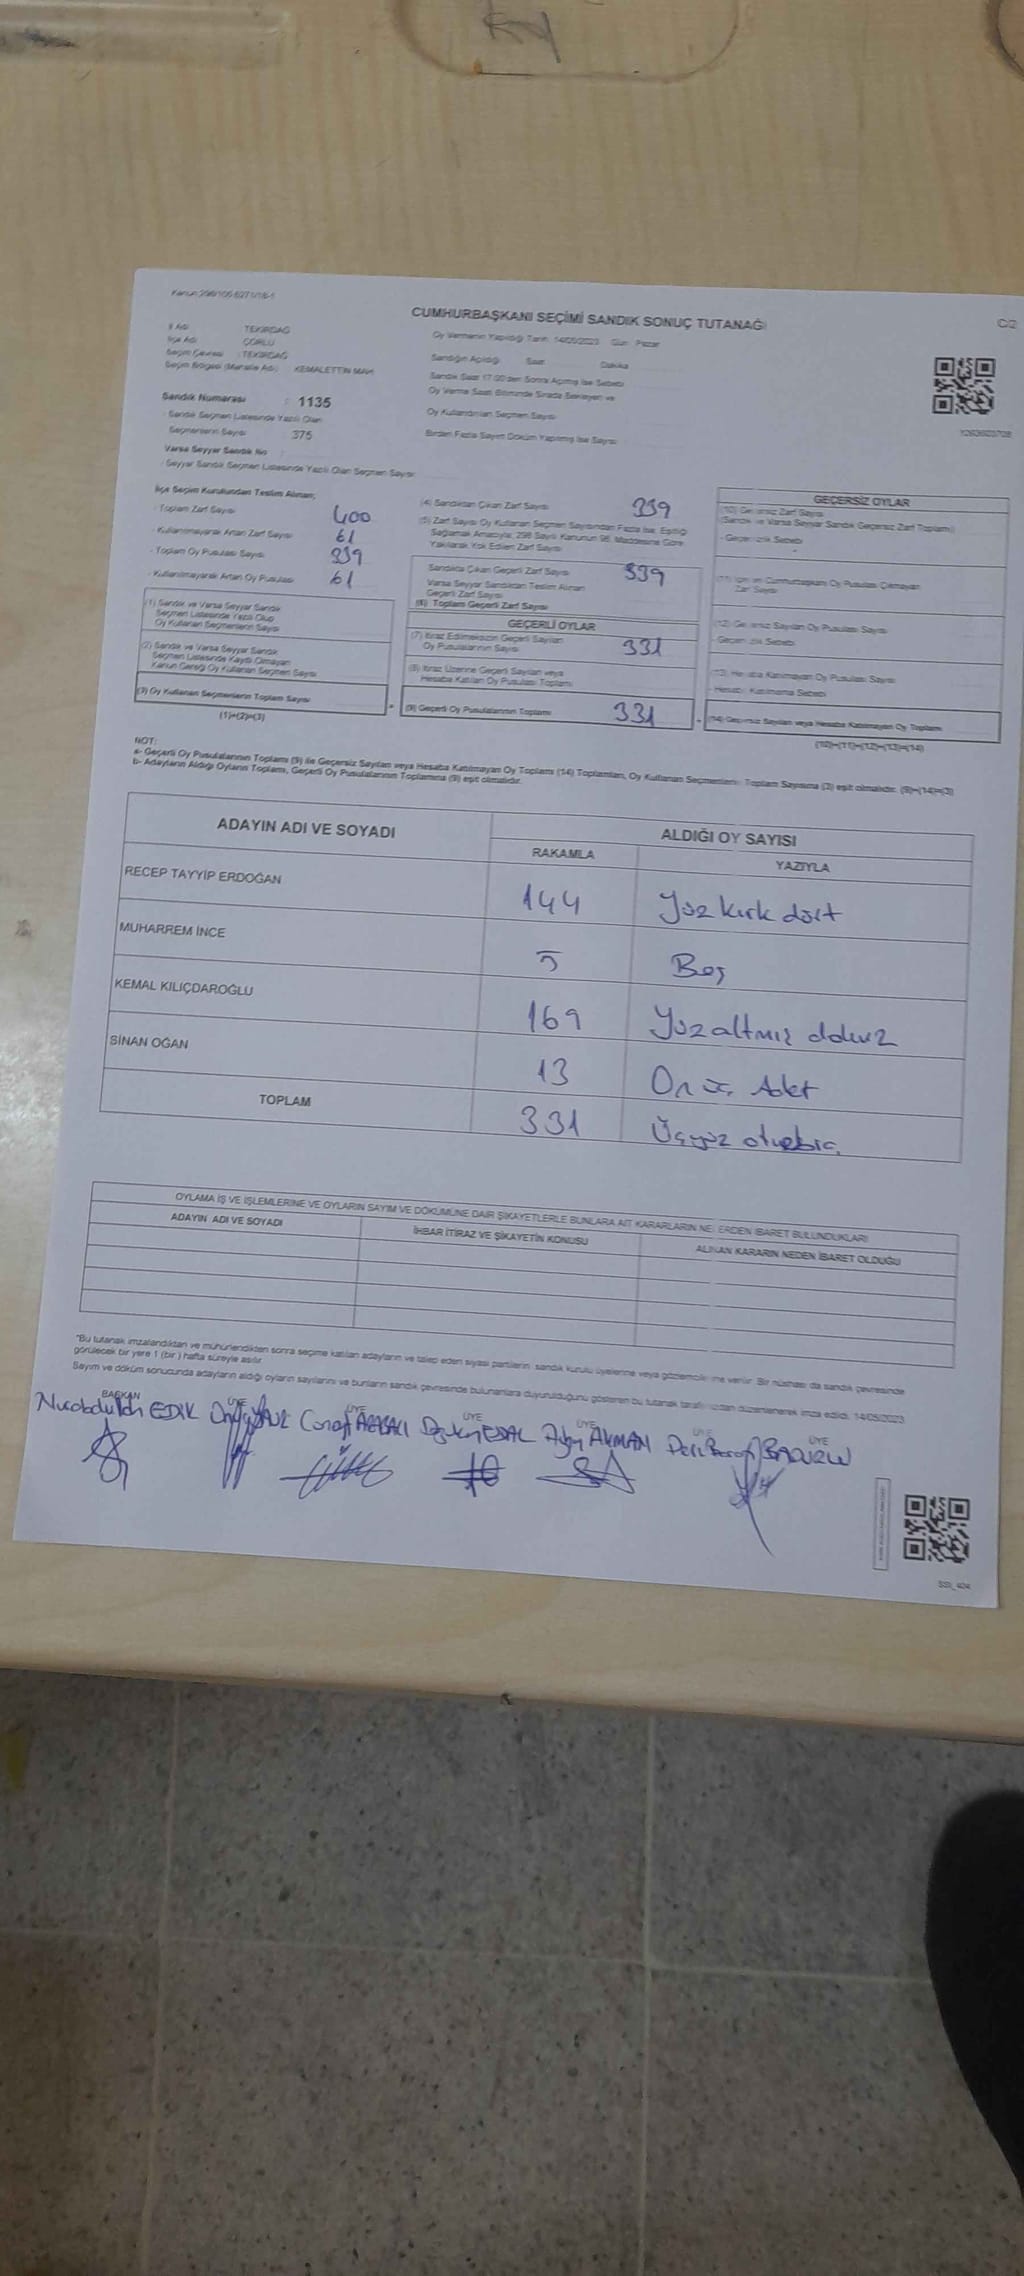 Kanun:298/105-6271/18-1
CUMHURBAŞKANI SEÇİMİ SANDIK SONUÇ TUTANAĞI
C/2
İl Adı TEKİRDAĞ
İlçe Adı ÇORLU
Seçim Çevresi : TEKİRDAĞ
Seçim Bölgesi (Mahalle Adı) KEMALETTİN MAH.
Sandık Numarası : 1135
Sandık Seçmen Listesinde Yazılı Olan
Seçmenlerin Sayısı 375
Varsa Seyyar Sandık No
Seyyar Sandık Seçmen Listesinde Yazılı Olan Seçmen Sayısı
Oy Vermenin Yapıldığı Tarih: 14/05/2023 Gün: Pazar
Sandığın Açıldığı Saat Dakika
Sandık Saat 17:00'den Sonra Açılmış İse Sebebi
Oy Verme Saati Bitiminde Sırada Bekleyen ve
Oy Kullandırılan Seçmen Sayısı
Birden Fazla Sayım Döküm Yapılmış İse Sayısı
İlçe Seçim Kurulundan Teslim Alınan;
- Toplam Zarf Sayısı 400
- Kullanılmayarak Artan Zarf Sayısı 61
- Toplam Oy Pusulası Sayısı 339
- Kullanılmayarak Artan Oy Pusulası 61
(1) Sandık ve Varsa Seyyar Sandık
Seçmen Listesinde Yazılı Olup
Oy Kullanan Seçmenlerin Sayısı
(2) Sandık ve Varsa Seyyar Sandık
Seçmen Listesinde Kayıtlı Olmayan
Kanun Gereği Oy Kullanan Seçmen Sayısı
(3) Oy Kullanan Seçmenlerin Toplam Sayısı
(1)+(2)=(3)
(4) Sandıktan Çıkan Zarf Sayısı 339
(5) Zarf Sayısı Oy Kullanan Seçmen Sayısından Fazla İse, Eşitliği
Sağlamak Amacıyla, 298 Sayılı Kanunun 98. Maddesine Göre
Yakılarak Yok Edilen Zarf Sayısı
Sandıkta Çıkan Geçerli Zarf Sayısı 339
Varsa Seyyar Sandıktan Teslim Alınan
Geçerli Zarf Sayısı
(6) Toplam Geçerli Zarf Sayısı
GEÇERLİ OYLAR
(7) İtiraz Edilmeksizin Geçerli Sayılan
Oy Pusulalarının Sayısı 331
(8) İtiraz Üzerine Geçerli Sayılan veya
Hesaba Katılan Oy Pusulası Toplamı
(9) Geçerli Oy Pusulalarının Toplamı 331
GEÇERSİZ OYLAR
(10) Geçersiz Zarf Sayısı
(Sandık ve Varsa Seyyar Sandık Geçersiz Zarf Toplamı)
- Geçersizlik Sebebi
Zarf Sayısı
(12) Geçersiz Sayılan Oy Pusulası Sayısı
- Geçersizlik Sebebi
(13) Hesaba Katılmayan Oy Pusulası Sayısı
- Hesaba Katılmama Sebebi
(14) Geçersiz Sayılan veya Hesaba Katılmayan Oy Toplamı
(10)+(11)+(12)+(13)=(14)
NOT:
a- Geçerli Oy Pusulalarının Toplamı (9) ile Geçersiz Sayılan veya Hesaba Katılmayan Oy Toplamı (14) Toplamları, Oy Kullanan Seçmenlerin Toplam Sayısına (3) eşit olmalıdır. (9)+(14)=(3)
b- Adayların Aldığı Oyların Toplamı, Geçerli Oy Pusulalarının Toplamına (9) eşit olmalıdır.
ADAYIN ADI VE SOYADI ALDIĞI OY SAYISI
RAKAMLA YAZIYLA
RECEP TAYYİP ERDOĞAN 144 Yüz kırk dört
MUHARREM İNCE 5 Beş
KEMAL KILIÇDAROĞLU 169 Yüzaltmış dokuz
SİNAN OĞAN 13 On üç Adet
TOPLAM 331 Üçyüz otuzbir
OYLAMA İŞ VE İŞLEMLERİNE VE OYLARIN SAYIM VE DÖKÜMÜNE DAİR ŞİKAYETLERLE BUNLARA AİT KARARLARIN NELERDEN İBARET BULUNDUKLARI
ADAYIN ADI VE SOYADI İHBAR İTİRAZ VE ŞİKAYETİN KONUSU ALINAN KARARIN NEDEN İBARET OLDUĞU
*Bu tutanak imzalandıktan ve mühürlendikten sonra seçime katılan adayların ve talep eden siyasi partilerin sandık kurulu üyelerine veya gözlemcilerine verilir. Bir nüshası da sandık çevresinde
görülecek bir yere 1 (bir) hafta süreyle asılır.
Sayım ve döküm sonucunda adayların aldığı oyların sayılarını ve bunların sandık çevresinde bulunanlara duyurulduğunu gösteren bu tutanak tarafımızdan düzenlenerek imza edildi. 14/05/2023
BAŞKAN ÜYE ÜYE ÜYE ÜYE ÜYE ÜYE
EDİK AKMAN